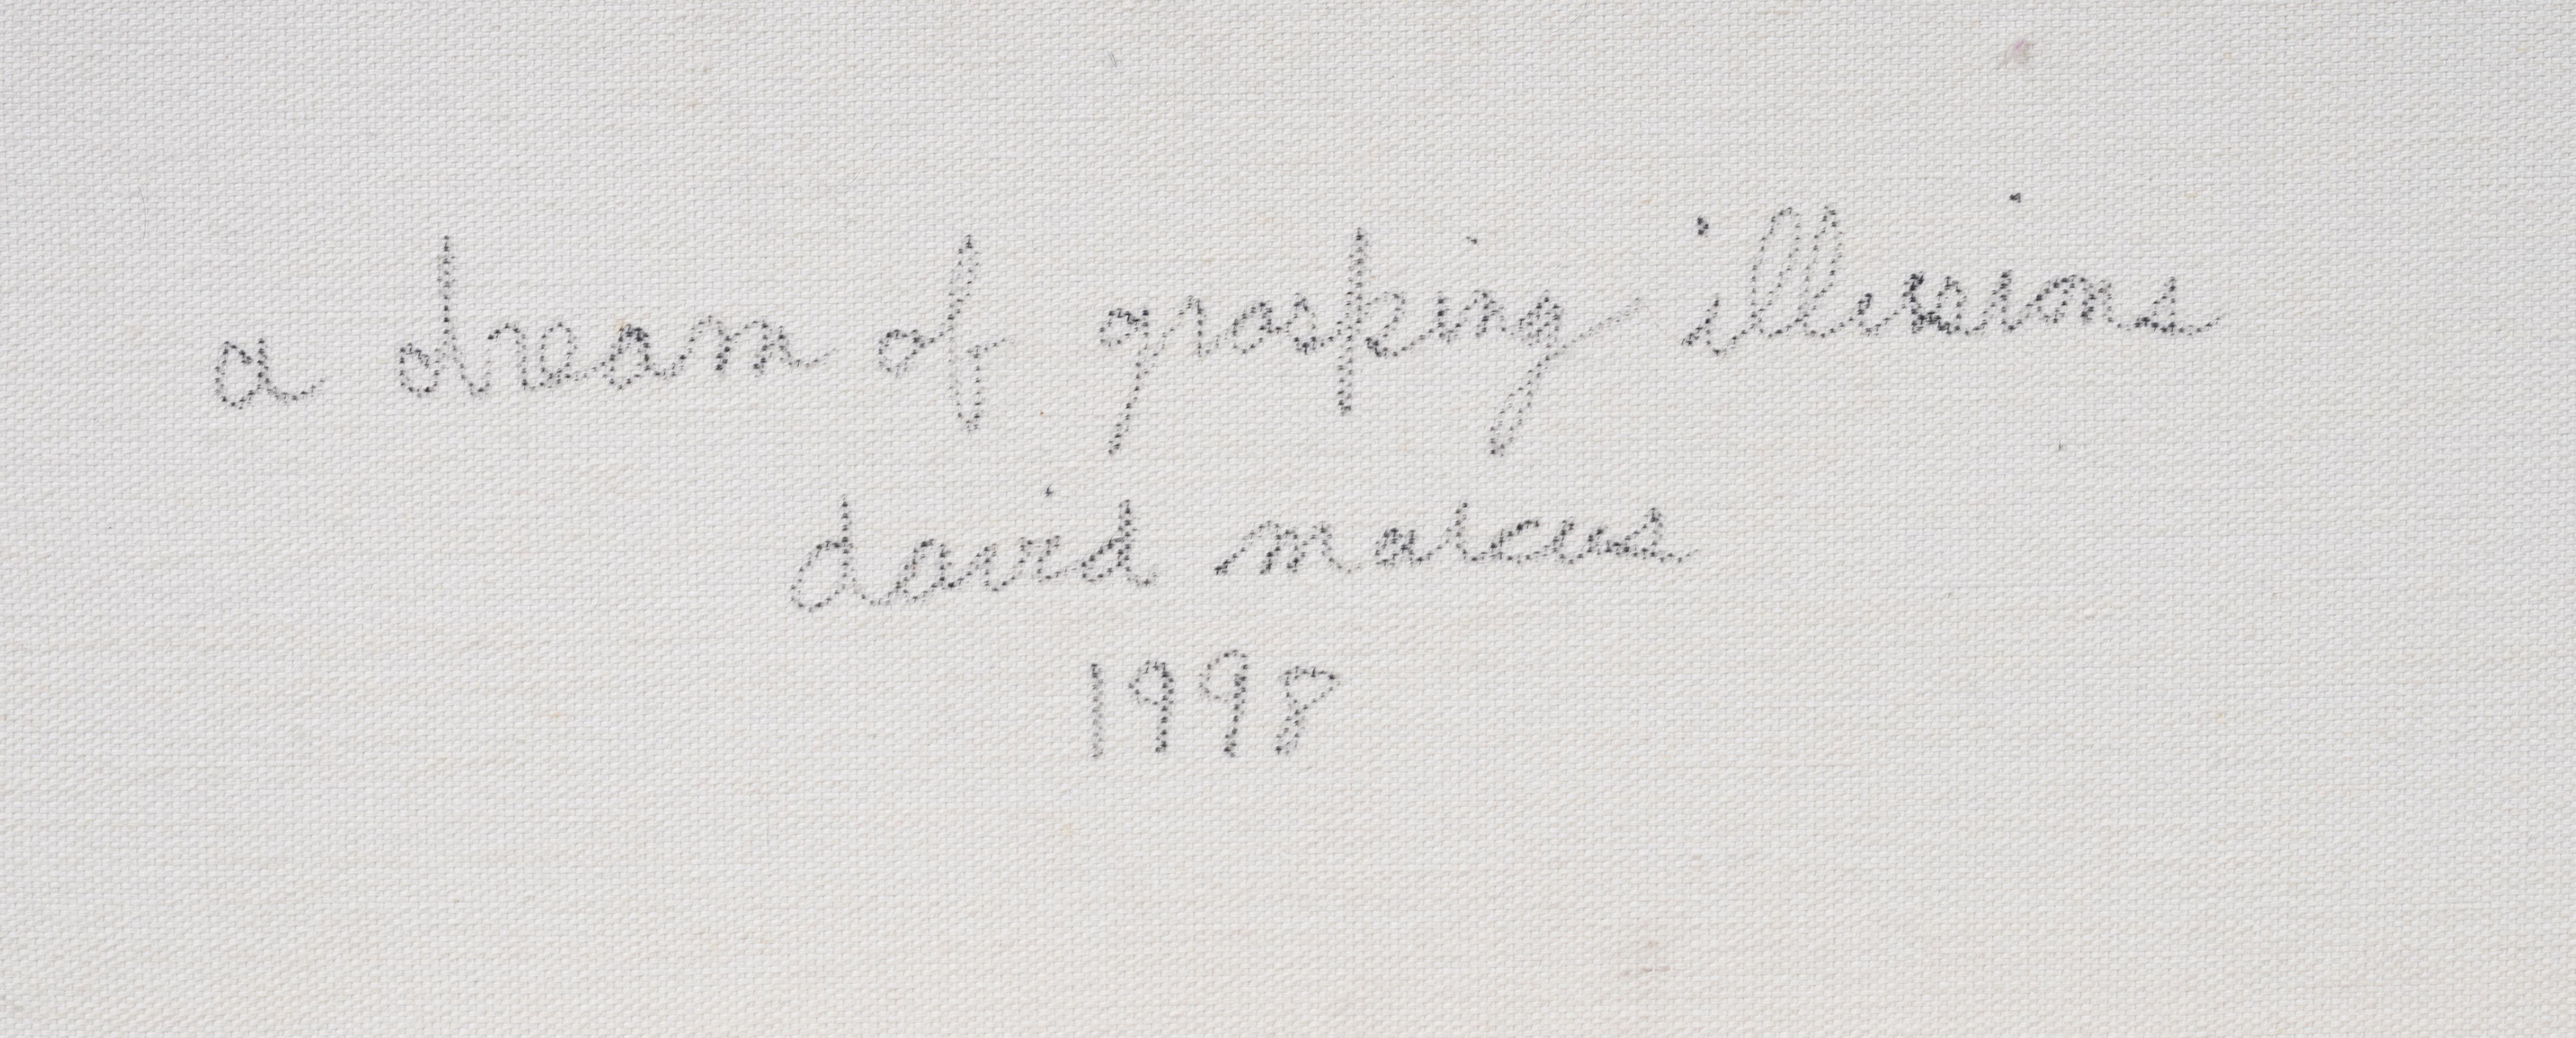 a dream of grasping illusions
david marcus
1998